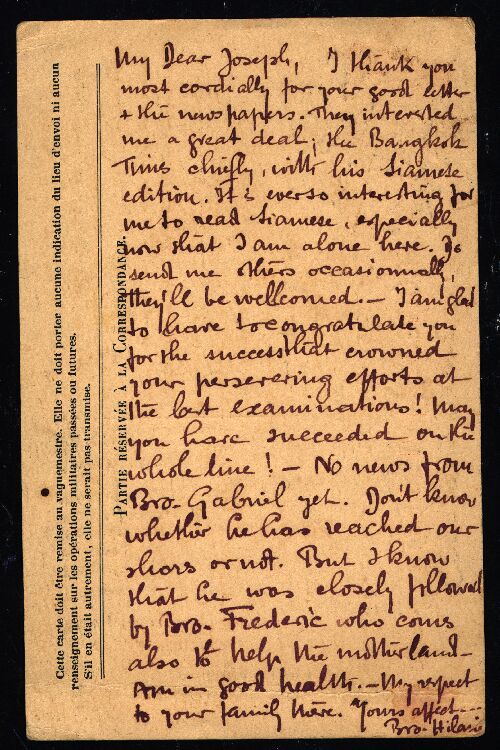 Cette carte doit être remise au vaguemestre. Elle ne doit porter aucune indication du lieu d'envoi ni aucun
renseignement sur les opérations militaires passées ou futures.
S'il en était autrement, elle ne serait pas transmise.
PARTIE RÉSERVÉE À LA CORRESPONDANCE.
My Dear Joseph, I thank you
most cordially for your good letter
+ the newspapers. They interested
me a great deal; the Bangkok
Times chiefly, with his Siamese
edition. It's ever so interesting for
me to read Siamese, especially
now that I am alone here. Do
send me others occasionnally,
they'll be wellcomed. – I am glad
to have to congratulate you
for the success that crowned
your persevering efforts at
the last examinations! May
you have succeeded on the
whole line! – No news from
Bro. Gabriel yet. Don't know
whether he has reached our
shors or not. But I know
that he was closely followed
by Bro. Frederic who comes
also to help the motherland –
Am in good health. – My respect
to your family here. Yours affect...
Bro. Hilaire